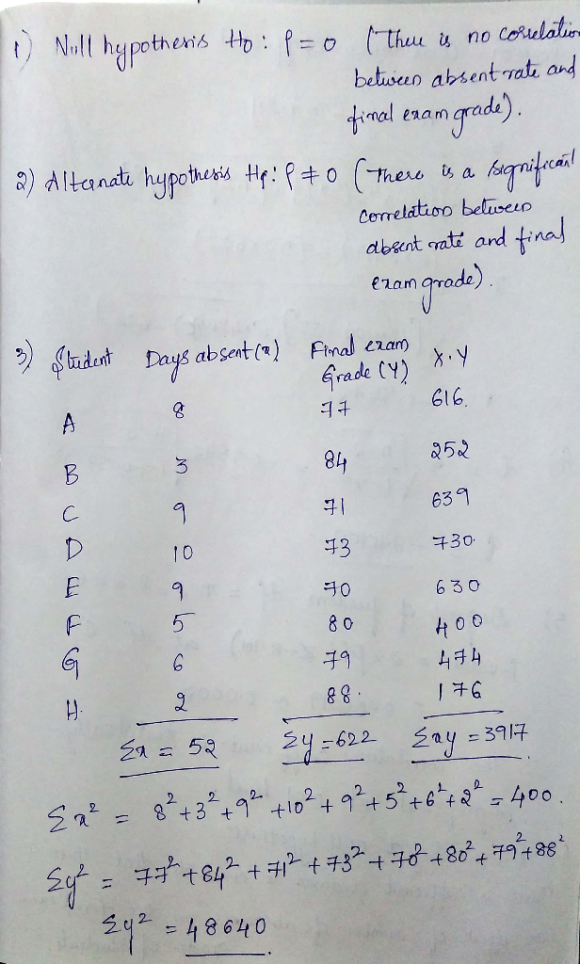 1) Null hypothesis H0 : ρ = 0 (There is no correlation
between absent rate and
final exam grade).
2) Alternate hypothesis H1 : ρ ≠ 0 (There is a significant
correlation between
absent rate and final
exam grade).
3) Student Days absent (x) Final exam Grade (Y) X·Y
A 8 77 616.
B 3 84 252
C 9 71 639
D 10 73 730
E 9 70 630
F 5 80 400
G 6 79 474
H. 2 88. 176
Σx = 52 Σy = 622 Σxy = 3917
Σx² = 8² + 3² + 9² + 10² + 9² + 5² + 6² + 2² = 400.
Σy² = 77² + 84² + 71² + 73² + 70² + 80² + 79² + 88²
Σy² = 48640.